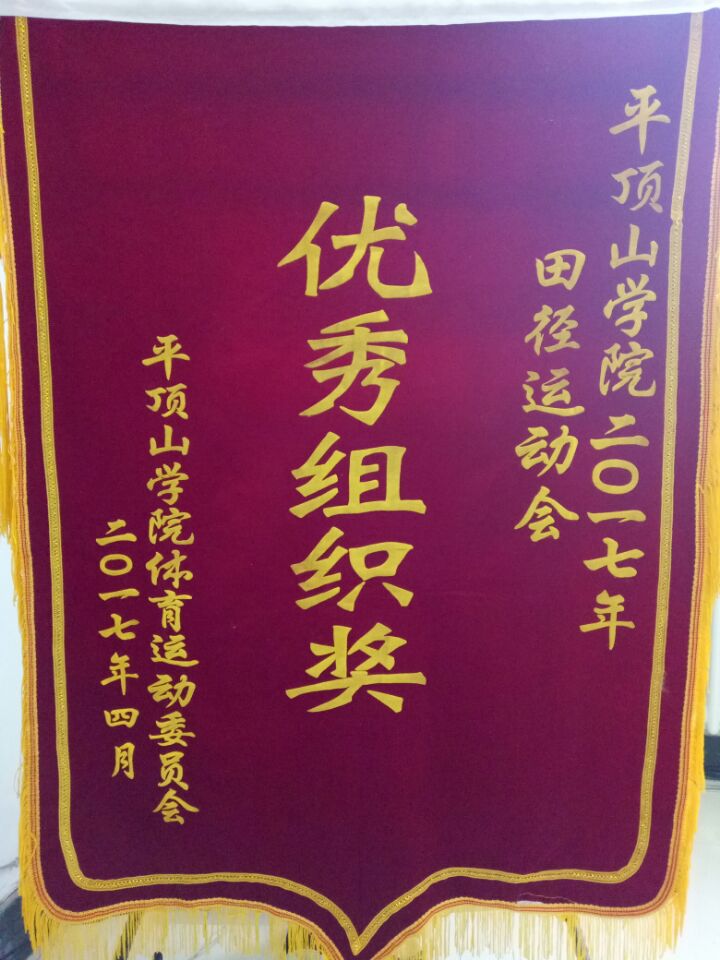 平顶山学院二〇一七年
田径运动会
优秀组织奖
平顶山学院体育运动委员会
二〇一七年四月